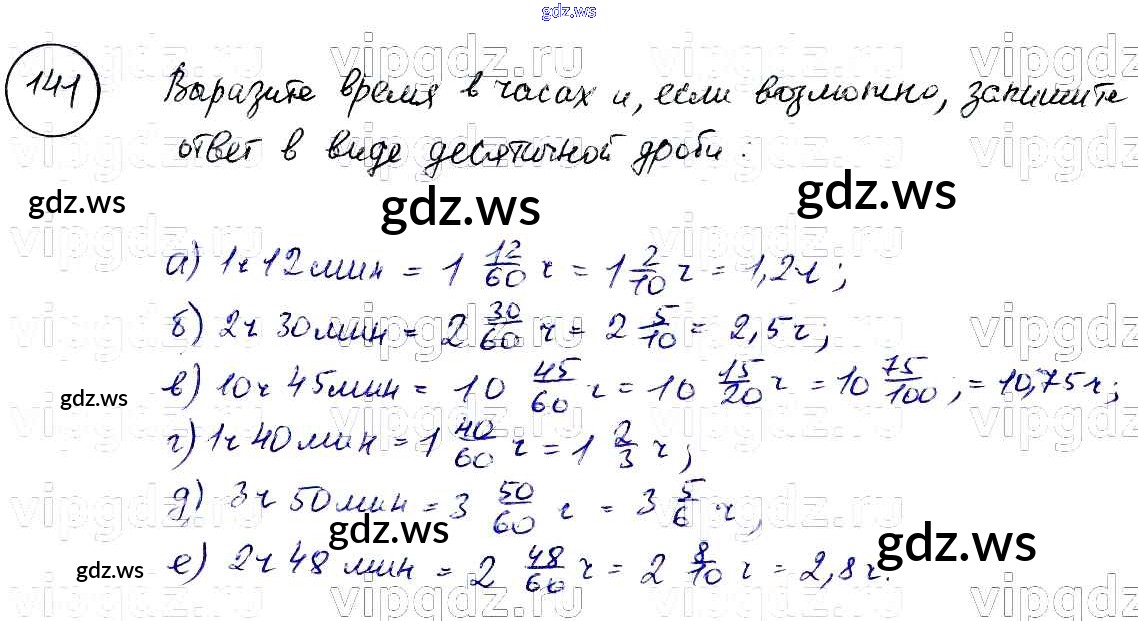 gdz.ws
141 Выразите время в часах и, если возможно, запишите
ответ в виде десятичной дроби:
gdz.ws gdz.ws gdz.ws
а) 1ч 12 мин = 1 12/60 ч = 1 2/10 ч = 1,2 ч;
б) 2ч 30 мин = 2 30/60 ч = 2 5/10 = 2,5 ч;
gdz.ws
в) 10ч 45 мин = 10 45/60 ч = 10 15/20 ч = 10 75/100; = 10,75 ч;
г) 1ч 40 мин = 1 40/60 ч = 1 2/3 ч;
д) 3ч 50 мин = 3 50/60 ч = 3 5/6 ч;
gdz.ws gdz.ws
е) 2ч 48 мин = 2 48/60 ч = 2 8/10 ч = 2,8 ч.
gdz.ws
vipgdz.ru